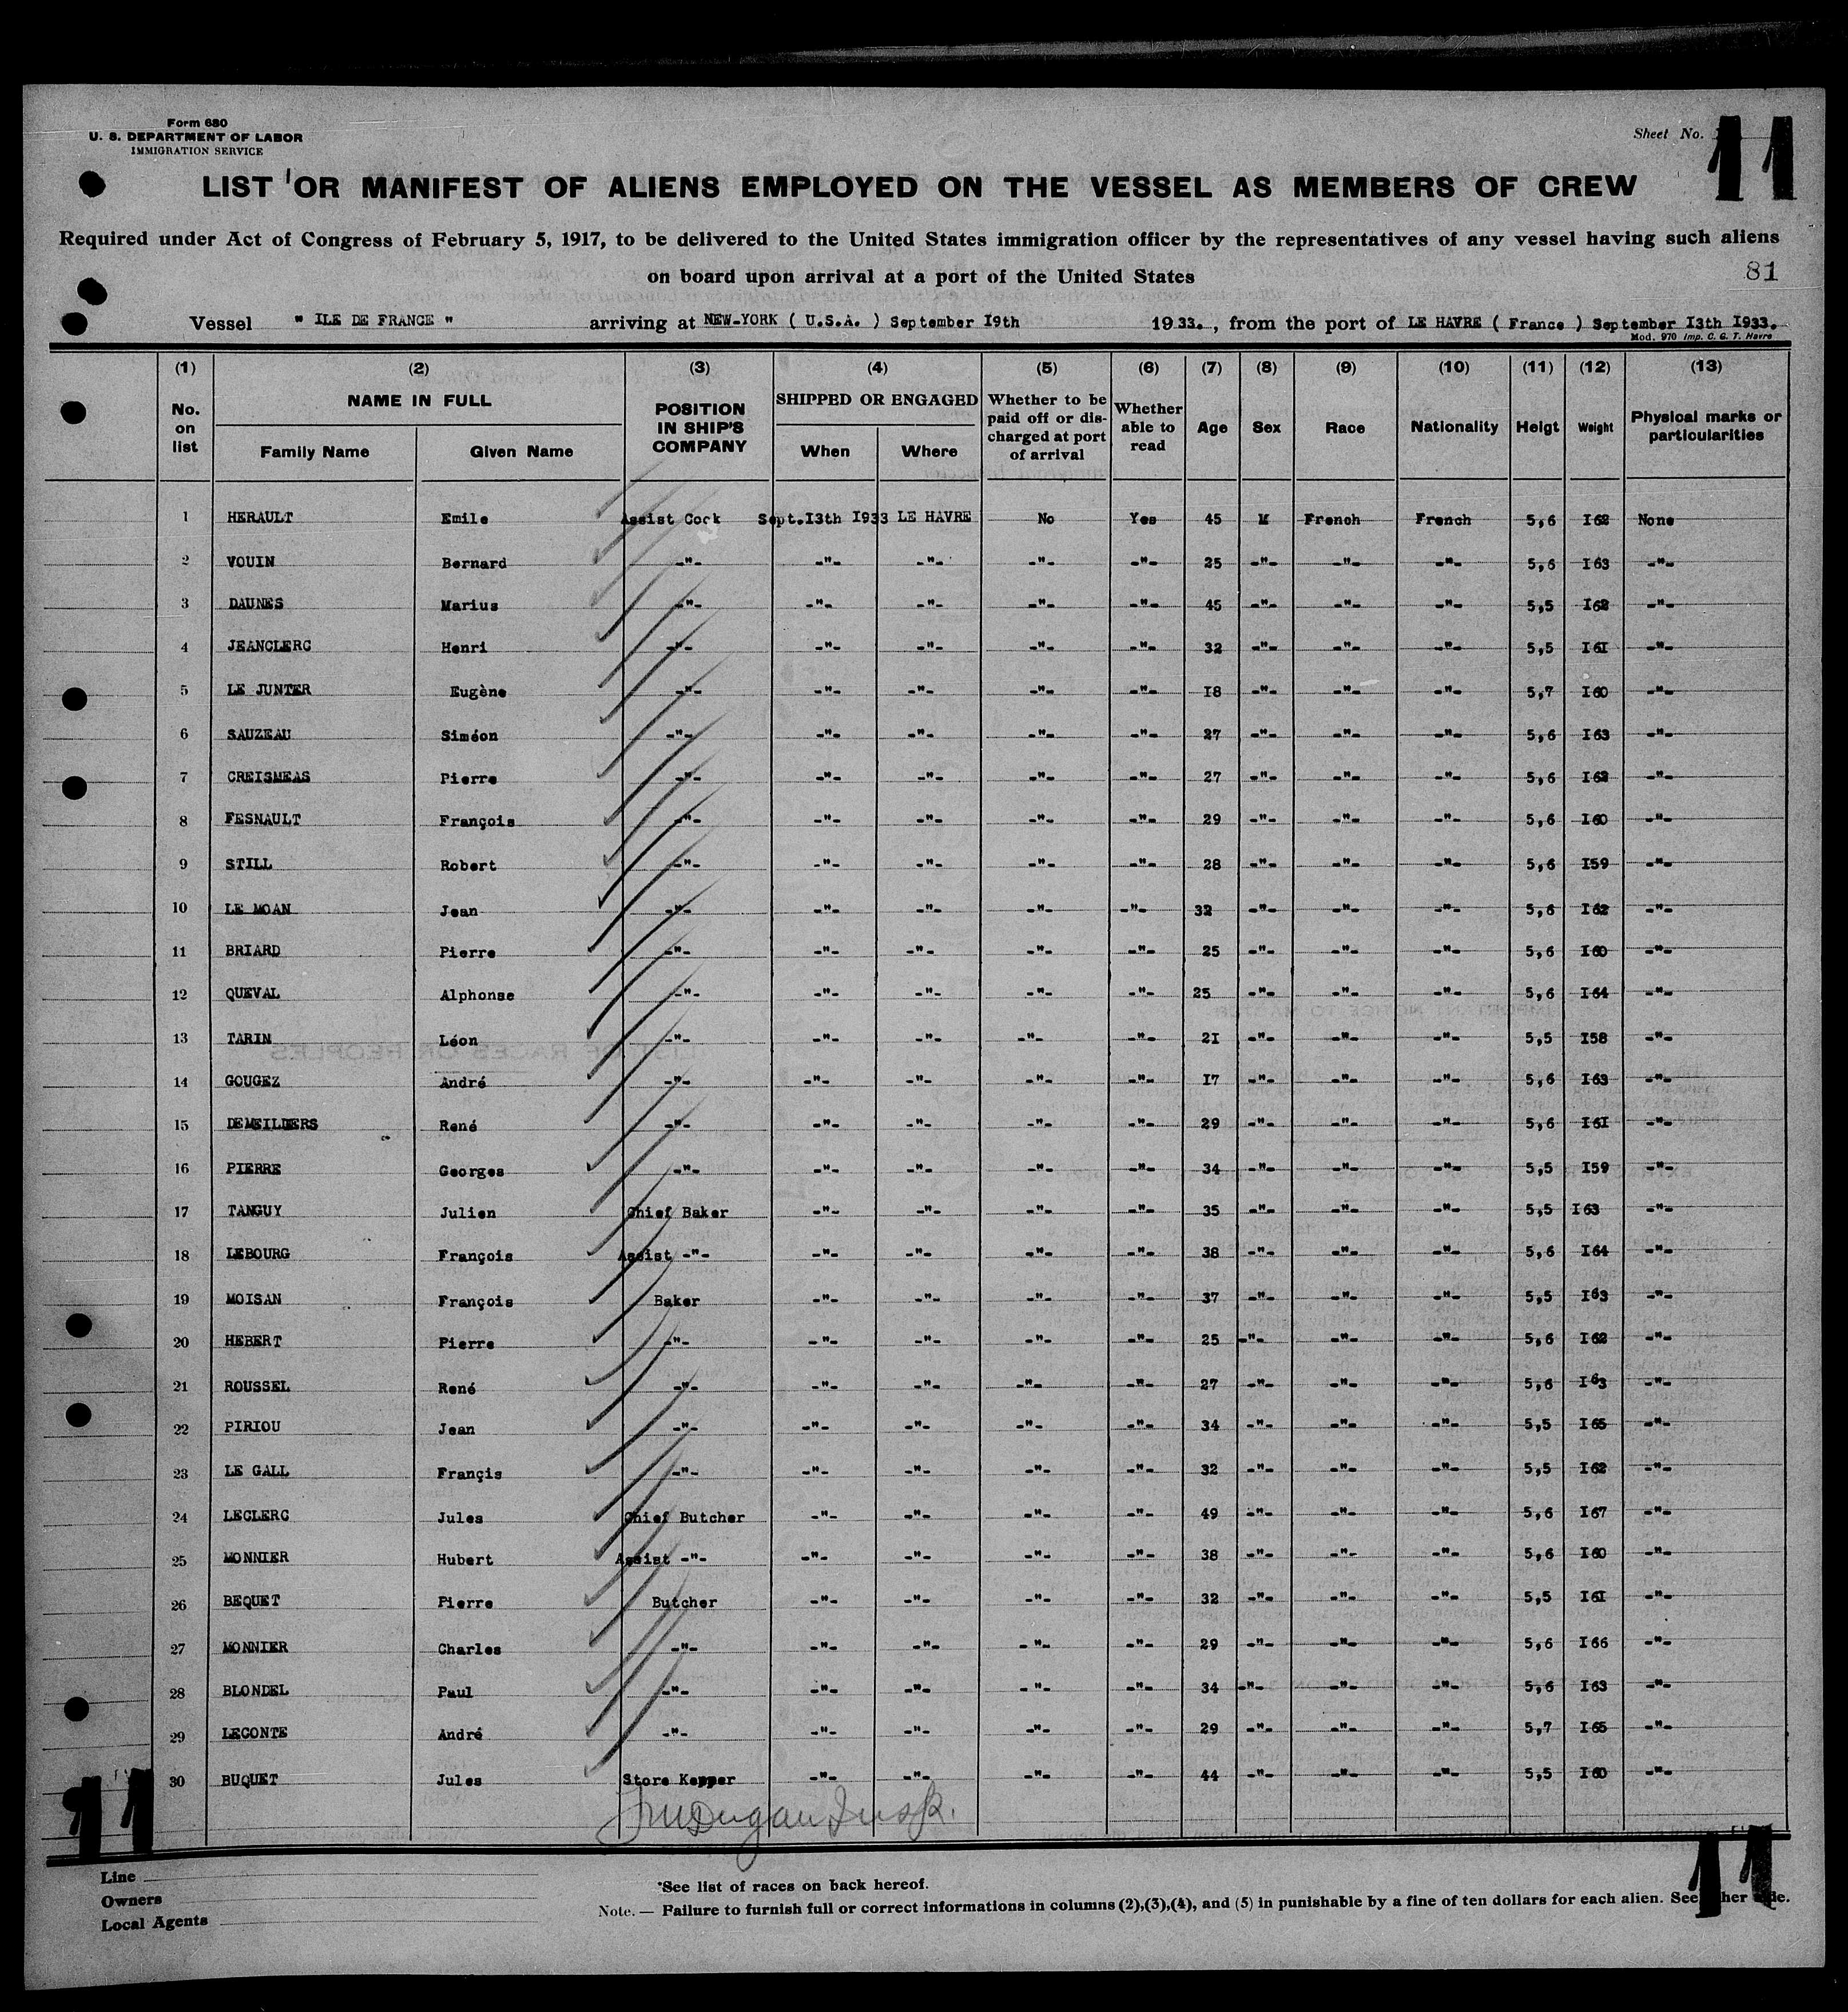 Form 680
U. S. DEPARTMENT OF LABOR
IMMIGRATION SERVICE
Sheet No.
11
LIST OR MANIFEST OF ALIENS EMPLOYED ON THE VESSEL AS MEMBERS OF CREW
Required under Act of Congress of February 5, 1917, to be delivered to the United States immigration officer by the representatives of any vessel having such aliens
on board upon arrival at a port of the United States
81
Vessel " ILE DE FRANCE " arriving at NEW-YORK ( U.S.A. ) September I9th 1933. , from the port of LE HAVRE ( France ) September I3th I933.
Mod. 970 Imp. C. G. T. Havre
(1) (2) (3) (4) (5) (6) (7) (8) (9) (10) (11) (12) (13)
No. on list NAME IN FULL Family Name Given Name POSITION IN SHIP'S COMPANY SHIPPED OR ENGAGED When Where Whether to be paid off or discharged at port of arrival Whether able to read Age Sex Race Nationality Heigt Weight Physical marks or particularities
1 HERAULT Emile Assist Cook Sept.I3th I933 LE HAVRE No Yes 45 M French French 5,6 I62 None
2 VOUIN Bernard -"- -"- -"- -"- -"- 25 -"- -"- -"- 5,6 I63 -"-
3 DAUNES Marius -"- -"- -"- -"- -"- 45 -"- -"- -"- 5,5 I62 -"-
4 JEANCLERC Henri -"- -"- -"- -"- -"- 32 -"- -"- -"- 5,5 I6I -"-
5 LE JUNTER Eugène -"- -"- -"- -"- -"- I8 -"- -"- -"- 5,7 I60 -"-
6 SAUZEAU Siméon -"- -"- -"- -"- -"- 27 -"- -"- -"- 5,6 I63 -"-
7 CREISMEAS Pierre -"- -"- -"- -"- -"- 27 -"- -"- -"- 5,6 I62 -"-
8 FESNAULT François -"- -"- -"- -"- -"- 29 -"- -"- -"- 5,6 I60 -"-
9 STILL Robert -"- -"- -"- -"- -"- 28 -"- -"- -"- 5,6 I59 -"-
10 LE MOAN Jean -"- -"- -"- -"- -"- 32 -"- -"- -"- 5,6 I62 -"-
11 BRIARD Pierre -"- -"- -"- -"- -"- 25 -"- -"- -"- 5,6 I60 -"-
12 QUEVAL Alphonse -"- -"- -"- -"- -"- 25 -"- -"- -"- 5,6 I64 -"-
13 TARIN Léon -"- -"- -"- -"- -"- 2I -"- -"- -"- 5,5 I58 -"-
14 GOUGEZ André -"- -"- -"- -"- -"- I7 -"- -"- -"- 5,6 I63 -"-
15 DEMEILDERS René -"- -"- -"- -"- -"- 29 -"- -"- -"- 5,6 I6I -"-
16 PIERRE Georges -"- -"- -"- -"- -"- 34 -"- -"- -"- 5,5 I59 -"-
17 TANGUY Julien Chief Baker -"- -"- -"- -"- 35 -"- -"- -"- 5,5 I63 -"-
18 LEBOURG François Assist -"- -"- -"- -"- -"- 38 -"- -"- -"- 5,6 I64 -"-
19 MOISAN François Baker -"- -"- -"- -"- 37 -"- -"- -"- 5,5 I63 -"-
20 HEBERT Pierre -"- -"- -"- -"- -"- 25 -"- -"- -"- 5,6 I62 -"-
21 ROUSSEL René -"- -"- -"- -"- -"- 27 -"- -"- -"- 5,6 I63 -"-
22 PIRIOU Jean -"- -"- -"- -"- -"- 34 -"- -"- -"- 5,5 I65 -"-
23 LE GALL Françis -"- -"- -"- -"- -"- 32 -"- -"- -"- 5,5 I62 -"-
24 LECLERC Jules Chief Butcher -"- -"- -"- -"- 49 -"- -"- -"- 5,6 I67 -"-
25 MONNIER Hubert Assist -"- -"- -"- -"- -"- 38 -"- -"- -"- 5,6 I60 -"-
26 BEQUET Pierre Butcher -"- -"- -"- -"- 32 -"- -"- -"- 5,5 I6I -"-
27 MONNIER Charles -"- -"- -"- -"- -"- 29 -"- -"- -"- 5,6 I66 -"-
28 BLONDEL Paul -"- -"- -"- -"- -"- 34 -"- -"- -"- 5,6 I63 -"-
29 LECONTE André -"- -"- -"- -"- -"- 29 -"- -"- -"- 5,7 I65 -"-
30 BUQUET Jules Store Kepper -"- -"- -"- -"- 44 -"- -"- -"- 5,5 I60 -"-
11
11
Line
Owners
Local Agents
*See list of races on back hereof.
Note. — Failure to furnish full or correct informations in columns (2),(3),(4), and (5) in punishable by a fine of ten dollars for each alien. See